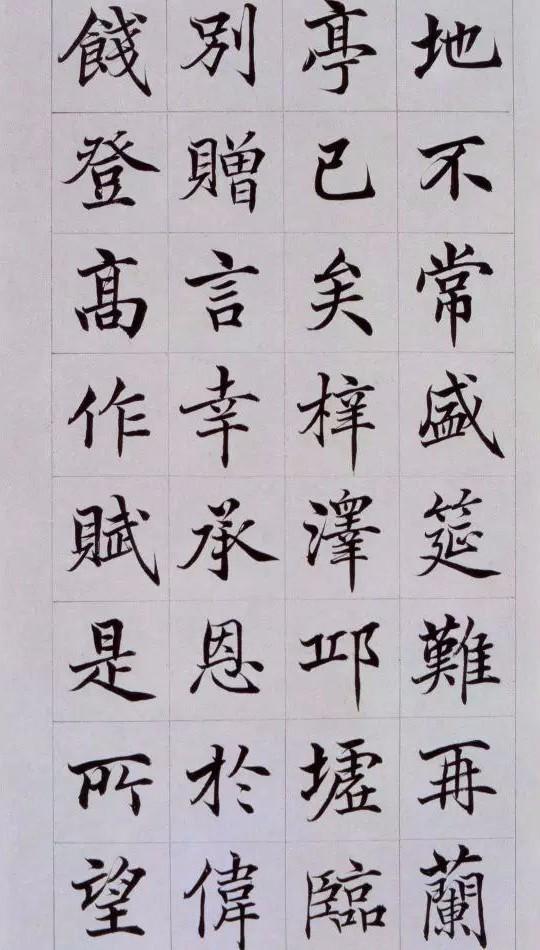 地不常盛筵難再蘭
亭已矣梓澤邱墟臨
別贈言幸承恩於偉
餞登高作賦是所望